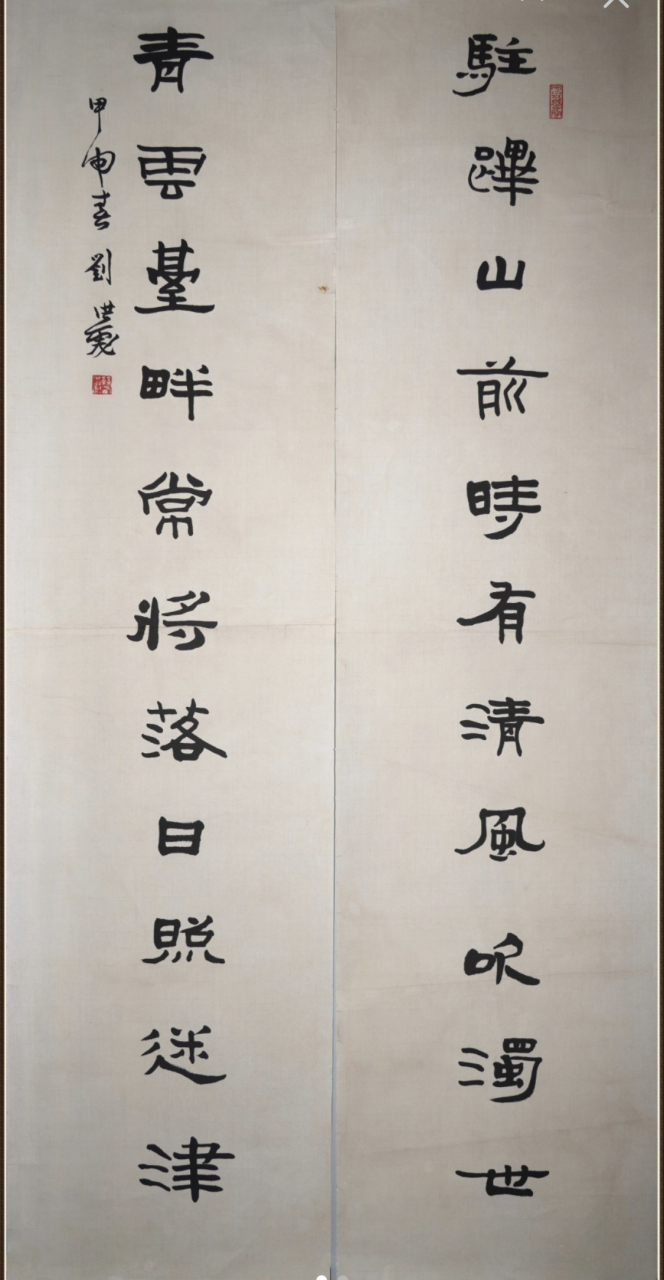 駐蹕山前時有清風吹濁世
青雲臺畔常將落日照迷津
甲申春劉洪彪